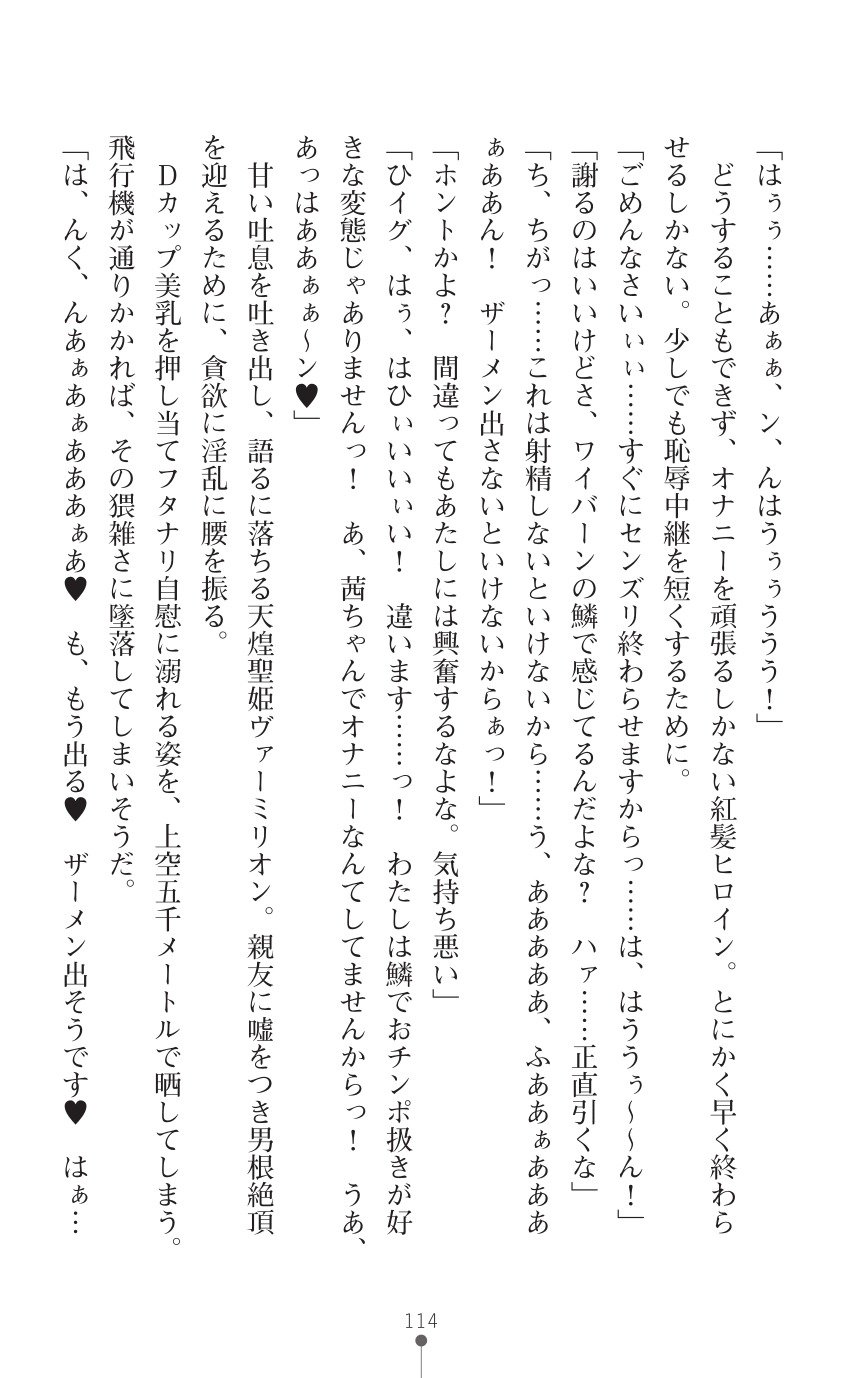 「はぅぅ……あぁぁ、ン、んはうぅぅううう！」
どうすることもできず、オナニーを頑張るしかない紅髪ヒロイン。とにかく早く終わら
せるしかない。少しでも恥辱中継を短くするために。
「ごめんなさいぃぃ……すぐにセンズリ終わらせますからっ……は、はううぅ～～ん！」
「謝るのはいいけどさ、ワイバーンの鱗で感じてるんだよな？　ハァ……正直引くな」
「ち、ちがっ……これは射精しないといけないから……う、ああああああ、ふああぁあああ
ぁああん！　ザーメン出さないといけないからぁっ！」
「ホントかよ？　間違ってもあたしには興奮するなよな。気持ち悪い」
「ひイグ、はぅ、はひぃいいぃい！　違います……っ！　わたしは鱗でおチンポ扱きが好
きな変態じゃありませんっ！　あ、茜ちゃんでオナニーなんてしてませんからっ！　うあ、
あっはああぁぁ～ン♥」
甘い吐息を吐き出し、語るに落ちる天煌聖姫ヴァーミリオン。親友に嘘をつき男根絶頂
を迎えるために、貪欲に淫乱に腰を振る。
Ｄカップ美乳を押し当てフタナリ自慰に溺れる姿を、上空五千メートルで晒してしまう。
飛行機が通りかかれば、その猥雑さに墜落してしまいそうだ。
「は、んく、んあぁあぁあああぁあ♥　も、もう出る♥　ザーメン出そうです♥　はぁ…
114